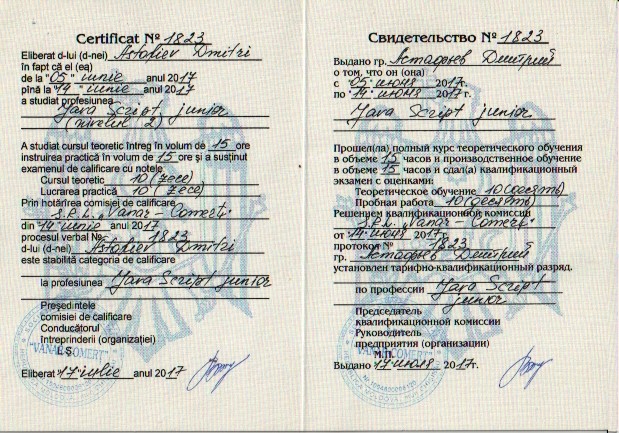 Certificat № 1823
Eliberat d-lui (d-nei) Astafiev Dmitri
în fapt că el (ea)
de la "05" iunie anul 2017
pînă la "14" iunie anul 2017
a studiat profesiunea
Java Script junior
(nivelul 2)
A studiat cursul teoretic întreg în volum de 15 ore
instruire practică în volum de 15 ore și a susținut
examenul de calificare cu notele:
Cursul teoretic 10 (zece)
Lucrarea practică 10 (zece)
Prin hotărîrea comisiei de calificare
S.R.L. "Vanar-Comerț"
din "14" iunie anul 2017
procesul verbal № 1823
d-lui (d-nei) Astafiev Dmitri
este stabilită categoria de calificare
la profesiunea Java Script junior
Președintele
comisiei de calificare
Conducătorul
întreprinderii (organizației)
L.Ș.
"VANAR-COMERȚ"
Eliberat "17" iulie anul 2017
Свидетельство № 1823
Выдано гр. Астафьев Дмитрий
о том, что он (она)
с "05" июня 2017г.
по "14" июня 2017г.
Java Script junior
Прошел(ла) полный курс теоретического обучения
в объеме 15 часов и производственное обучение
в объеме 15 часов и сдал(а) квалификационный
экзамен с оценками:
Теоретическое обучение 10 (десять)
Пробная работа 10 (десять)
Решением квалификационной комиссии
S.R.L. "Vanar-Comerț"
от "14" июня 2017г.
протокол № 1823
гр. Астафьев Дмитрий
установлен тарифно-квалификационный разряд.
по профессии Java Script
junior
Председатель
квалификационной комиссии
Руководитель
предприятия (организации)
М.П.
"VANAR-COMERȚ"
Выдано "17" июля 2017г.